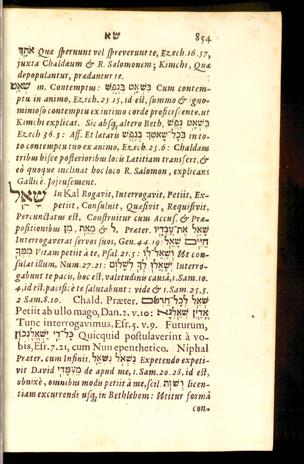 שא 854
אתך Quæ spernunt vel spreverunt te, Ezech. 16. 57,
juxta Chaldæum & R. Salomonem; Kimchi, Quæ
depopulantur, prædantur te.
שאט m. Contemptus: בשאט בנפש Cum contem-
ptu in animo, Ezec. 25. 15, id est, summo & igno-
minioso contemptu ex intimo corde proficiscente, ut
Kimchi explicat. Sic absq, altero Beth, בשאט נפש
Ezech 36. 5: Aff. Et lætaris בכל־שאטך בנפש in to-
to contemptu tuo ex animo, Ezec. 25. 6: Chaldæus
tribus hisce posterioribus locis Lætitiam transfert, &
eò quoque inclinat hoc loco R. Salomon, explicans
Gallicè Jojeusement.
שאל In Kal Rogavit, Interrogavit, Petiit, Ex-
petiit, Consuluit, Quæsivit, Requisivit,
Percunctatus est. Construitur cum Accus. & Præ-
positionibus מן, את, ב & ל. Præter. שאל את־עבדיו
Interrogaverat servos suos, Gen. 44. 19: חיים שאל
ממך Vitam petiit à te, Psal. 21. 5: ושאל־לו Ut con-
sulat illum, Num. 27. 21: ישאלו לך לשלום Interro-
gabunt te pacis, hoc est, valetudinis causâ, 1. Sam. 10.
4, id est, pacificè te salutabunt: vide & 1. Sam. 25. 5.
2 Sam. 8. 10. Chald. Præter.
Petiit ab ullo mago, Dan. 2. v. 10:
Tunc interrogavimus, Esr. 5. v. 9. Futurum,
Quicquid postulaverit à vo-
bis, Esr. 7. 21, cum Nun epenthetico. Niphal
Præter. cum Infinit. נשאל נשאל Expetendo expeti-
vit David ממני de apud me, 1. Sam. 20. 28, id est,
obnixè, omnibus modu petiit à me, scil. רשות licen-
tiam excurrendi usq, in Bethlehem: Utitur formâ
con-